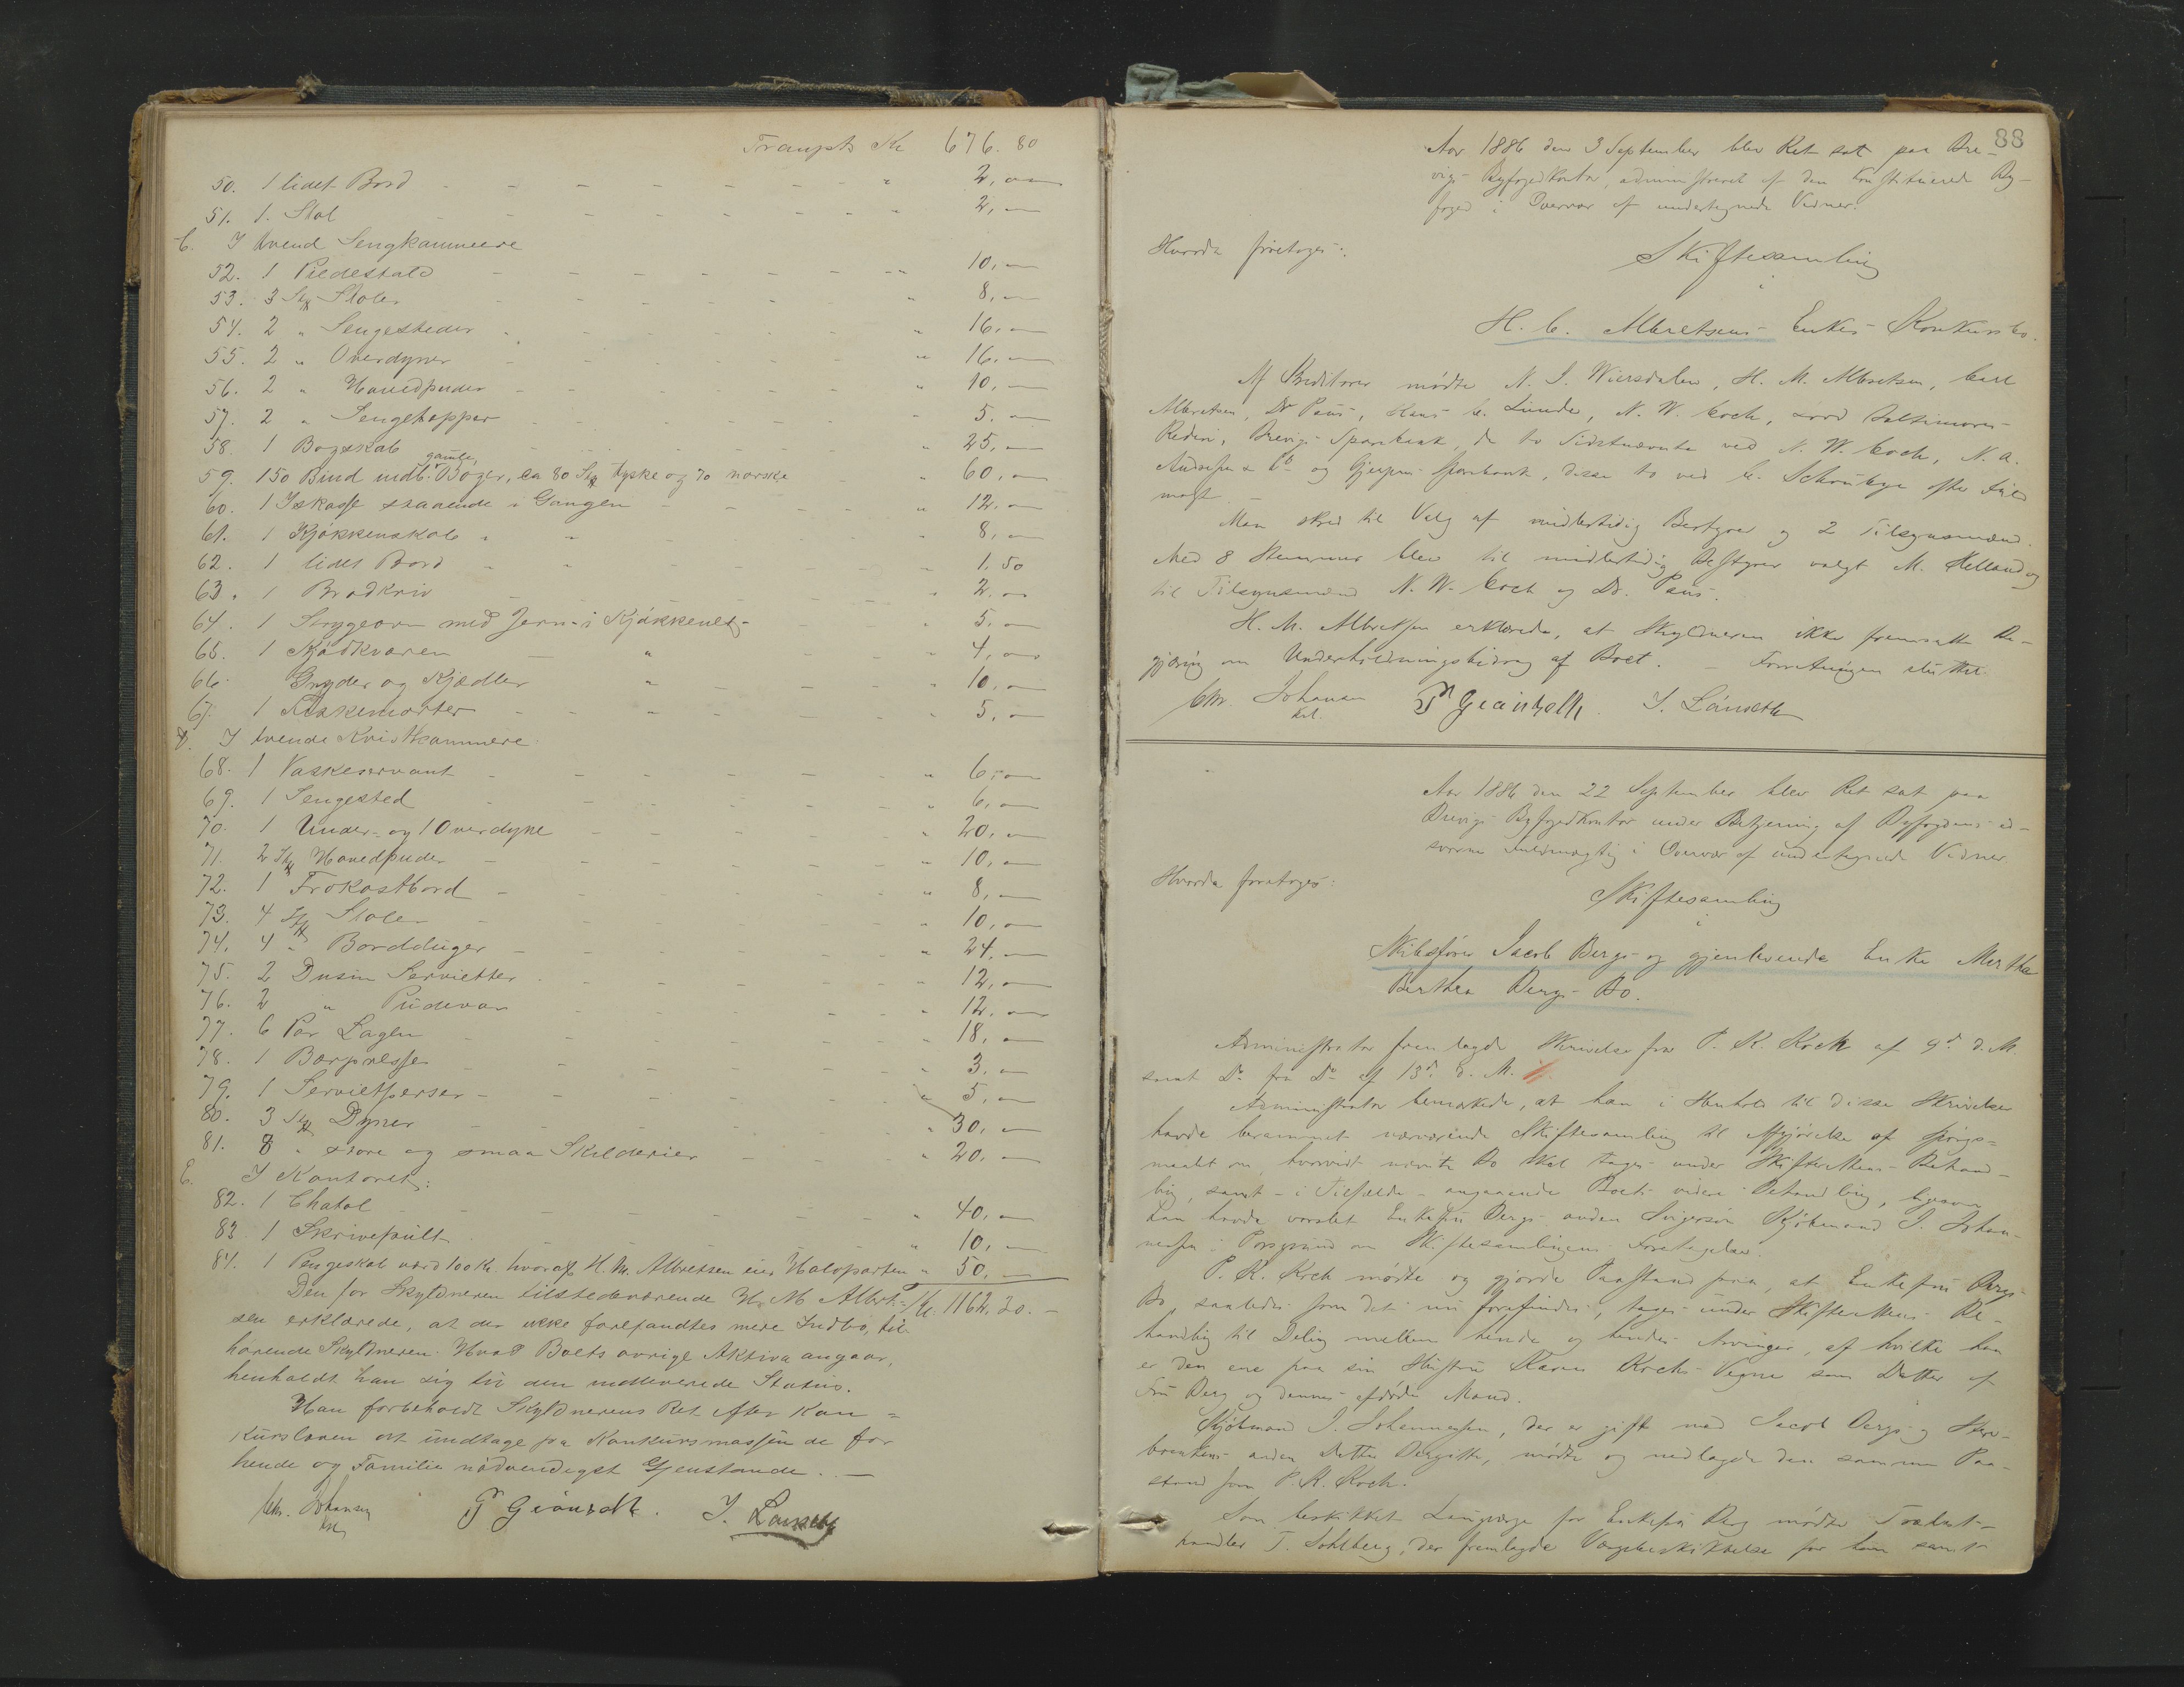 Transpt. Kr 676. 80
50. 1 lidet Bord - - - - " 2, —
51. 1 Stol - - - - " 2, —
C. I tvend Sengkammere
52. 1 Piedestald - - - - " 10, —
53. 3 Stk Stoler - - - - " 8, —
54. 2 " Sengesteder - - - - " 16, —
55. 2 " Overdyner - - - - " 16, —
56. 2 " Hovedpuder - - - - " 10, —
57. 2 " Sengetepper - - - - 5. —
58. 1 Bogskab - - - - " 25, —
59. 150 Bind indb. gamle Bøger, ca 80 Stk tyske og 70 norske " 60, —
60. 1 Iskasse staaende i Gangen - - " 12, —
61. 1 Kjøkkenskab - - - " 8, —
62. 1 lidet Bord - - - " 1. 50
63. 1 Brødkniv - - - " 2. —
64. 1 Strygeovn med Jern i Kjøkkenet - " 5. —
65. 1 Kjødkværn - " - - " 4, —
66. Gryder og Kjedler " - - " 10, —
67. 1 morter - - - " 5, —
D. I tvende Kvistkammere
68. 1 Vaskeservant - - - - " 6, —
69. 1 Sengested - - - - " 6, —
70. 1 Under- og 1 Overdyne - - - " 20, —
71. 2 Stk Hovedpuder - - - " 10, —
72. 1 Frokostbord - - - " 8, —
73. 4 Stk Stoler - - - " 10, —
74. 4 " Bordduger - - - " 24, —
75. 2 Dusin Servietter - - - " 12, —
76. 2 " Pudevar - - - " 12, —
77. 6 Par Lagen - - - " 18, —
78. 1 Bærpresse - - - " 3. —
79. 1 Servietperse - - - " 5, —
80. 3 Stk Dyner - - - " 30, —
81. 8 " store og smaa Skilderier - - " 20, —
E. I Kontoret:
82. 1 Chatol - - - - " 40, —
83 1 Skrivepult - - - " 10, —
84. 1 Pengeskab værd 100 Kr. hvoraf H. M. Albretsen eier Halvparten " 50, —
Den for Skyldneren tilstedeværende H. M. Albret- Kr. 1162, 30. -
sen erklærede, at der ikke forefandtes mere Indbo, til-
hørende Skyldneren. Hvad Boets øvrige Aktiva angaar,
henholdt han sig til den indleverede Status.
Han forbeholdt Skyldnerens Ret efter Kon=
kursloven at undtage fra Konkursmassen de for
hende og Familie nødvendigst Gjenstande. . —
Chr. Johansen P Grönholt. J. Lönseth
kst
88
Aar 1886 den 3 September blev Ret sat paa Bre-
vigs Byfogedkontor, administreret af den konstituerede By-
foged i Overvær af undertegnede Vidner.
Hvorda foretoges:
Skiftesamling
i
H. C. Albretsens Enkes Konkursbo.
Af Kreditorer mødte N. J. Wiersdalen, H. M. Albretsen, Carl
Albretsen, Dr Paus, Hans C. Lunde, N. W. Coch,
Rederi, Brevigs Sparebank, de to Sidstnævnte ved N. W. Coch, N. A.
Andresen & Co og Gjerpens Sparebank, disse to ved C. Schoubye efter Fuld
magt. -
Man skred til Valg af midlertidig Bestyrer og 2 Tilsynsmænd.
Med 8 Stemmer blev til midlertidig Bestyrer valgt M. Helland og
til Tilsynsmænd N. W. Coch og Dr. Paus.
H. M. Albretsen erklærede, at Skyldneren ikke fremsatte Be-
gjæring om Underholdningsbidrag af Boet. - Forretningen sluttet.
Chr. Johansen P Grönholt. J. Lönseth
kst.
Aar 1886 den 22 September blev Ret sat paa
Brevigs Byfogedkontor under Betjening af Byfogdens ed-
svorne Fuldmægtig i Overvær af undertegnede Vidner.
Hvorda foretoges:
Skiftesamling
i
Skibsfører Jacob Bergs og gjenlevende Enke Mertha
Berthea Bergs Bo.
Administrator fremlagde Skrivelse fra P. K. Koch af 9d d. M.
samt Do fra Do af 13d d. M.
Administrator bemærkede, at han i Henhold til disse Skrivelser
havde berammet nærværende Skiftesamling til Afgjørelse af Spørgs=
maalet om, hvorvidt nævnte Bo skal tages under Skifterettens Behand-
ling, samt - i Tilfælde - angaaende Boets videre Behandling, ligesom
han havde varslet Enkefru Bergs anden Svigersøn Kjøbmand J. Johan-
nesen i Porsgrund om Skiftesamlingens Foretagelse.
P. K. Koch mødte og gjorde Paastand paa, at Enkefru Bergs
Bo saaledes som det nu forefindes, tages under Skifterettens Be-
handling til Deling mellem hende og hendes Arvinger, af hvilke han
er den ene paa sin Hustru Karen Kochs Vegne som Datter af
Fru Berg og dennes afdøde Mand.
Kjøbmand J. Johannesen, der er gift med Jacob Bergs og
anden Datter Bergitte, mødte og nedlagde den samme Paa-
stand som P. K. Koch.
Som beskikket Laugværge for Enkefru Berg mødte Trælast-
handler T. Sohlberg, der fremlagde Værgebeskikkelse for ham samt